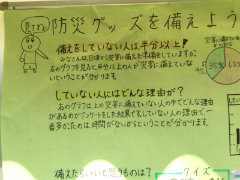 見てね!
防災グッズを備えよう
備えをしていない人は半分以上!
みなさんは、日頃から災害に備えた準備をしていますか。
右のグラフを見ると半分以上の人が災害に備えていな
いということが分かります。
していない人にはどんな理由が?
右のグラフ以上の災害に備えていない人の中でどんな理由
があるのかアンケートをした結果をもしていない人の理由で一
番多かったのは、時間がないからということが分かります。
備えたらいいと思うものは?
クイズ